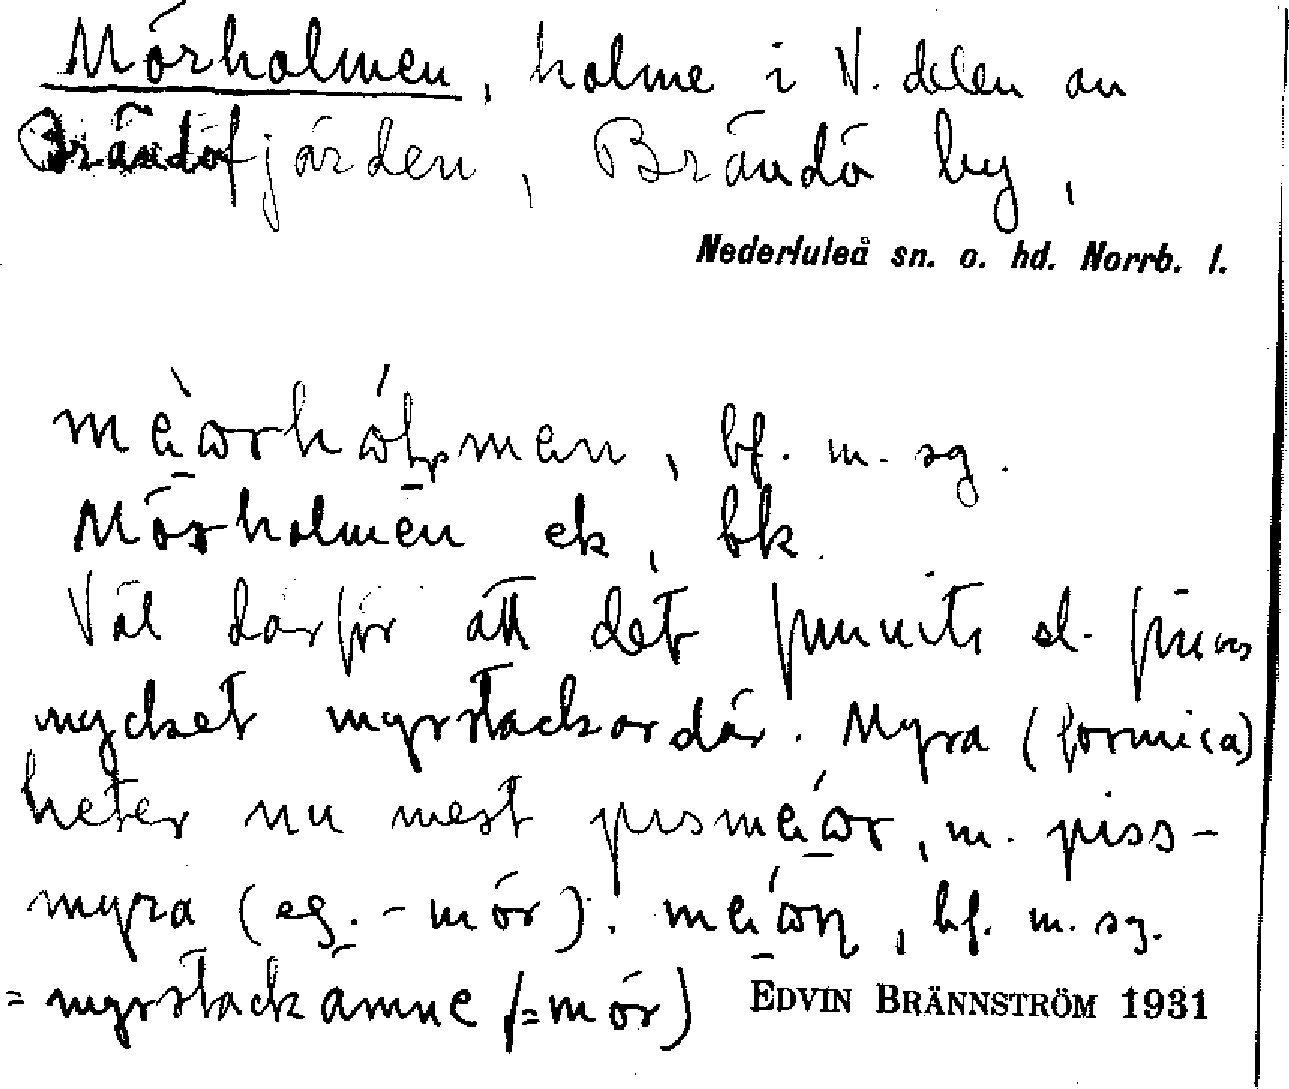 Mörholmen, holme i V. delen av
Brändöfjärden, Brändö by,
Nederluleå sn. o. hd. Norrb. l.
bf. m. sg.
Mörholmen ek, bk.
Väl därför att det funnits el. finns
mycket myrstackar där. Myra (formica)
heter nu mest m. piss-
myra (eg. -mör). bf. m. sg.
= myrstackämne (= mör) EDVIN BRÄNNSTRÖM 1931